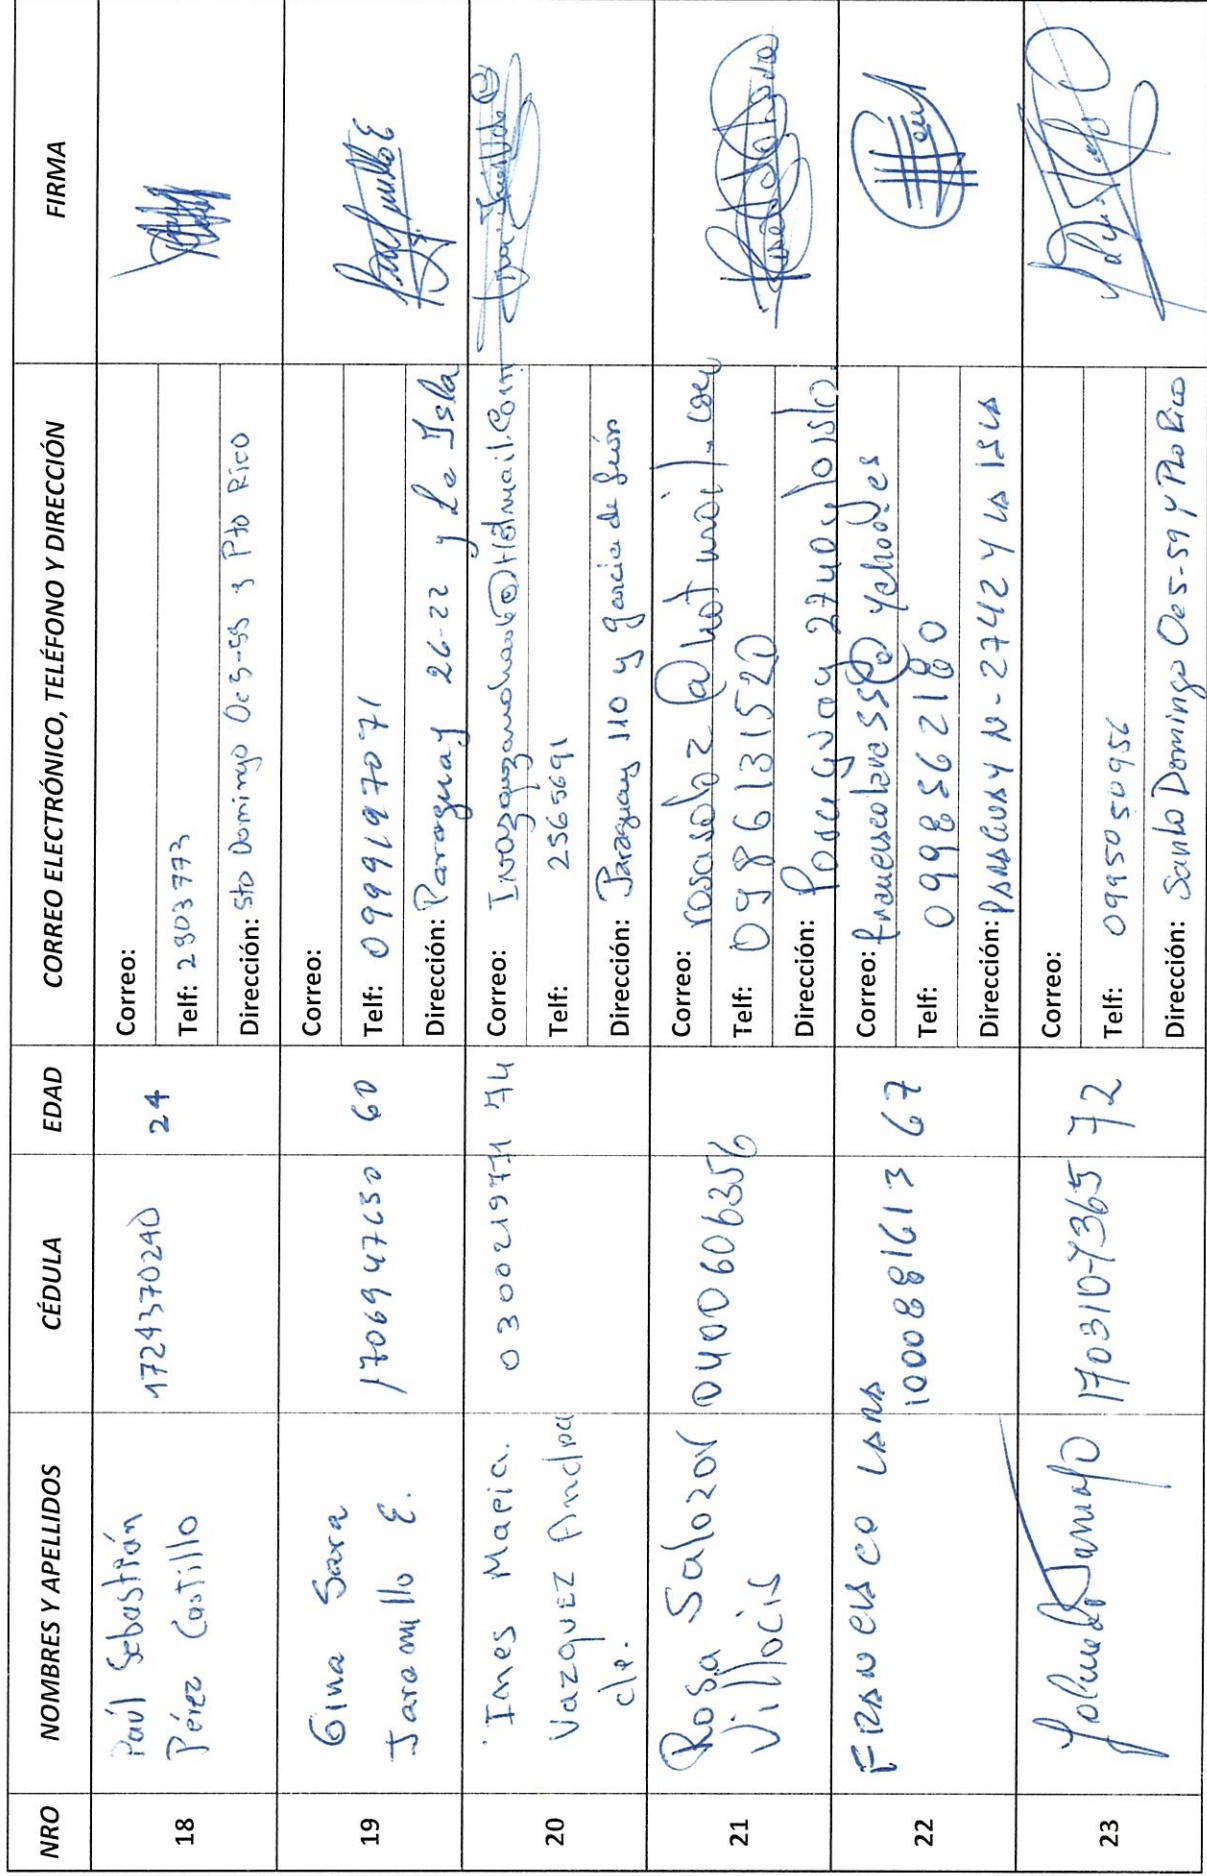 NRO NOMBRES Y APELLIDOS CÉDULA EDAD CORREO ELECTRÓNICO, TELÉFONO Y DIRECCIÓN FIRMA
18
Paúl Sebastián
Pérez Castillo
1724370240
24
Correo:
Telf: 2903773
Dirección: Sto Domingo Oe5-55 y Pto Rico
19
Gina Sara
Jaramillo E.
1706947650
60
Correo:
Telf: 0999197071
Dirección: Paraguay 26-22 y La Isla
20
Ines Maria.
Vazquez Andrade
0300219771
74
Correo: @Hotmail.Com
Telf: 2565691
Dirección: Paraguay 110 y Garcia de León
21
Rosa Salazar
Villacis
0400606356
Correo: rosasalaz@hotmail.com
Telf: 0986131520
Dirección: Paraguay 2740 y la isla.
22
FRANCISCO LARA
1000881613
67
Correo:
Telf: 0998562180
Dirección: PARAGUAY N-2742 Y LA ISLA
23
Jaramillo
1703107365
72
Correo:
Telf: 0995050956
Dirección: Santo Domingo Oe5-59 y Pto Rico